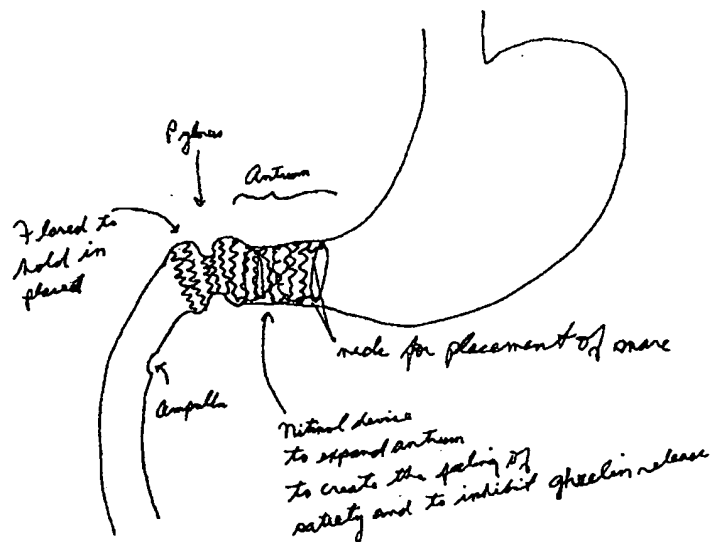 Pylorus
Antrum
Flared to
hold in
placed
neck for placement of snare
ampulla
Nitinol device
to expand antrum
to create the feeling of
satiety and to inhibit ghrelin release